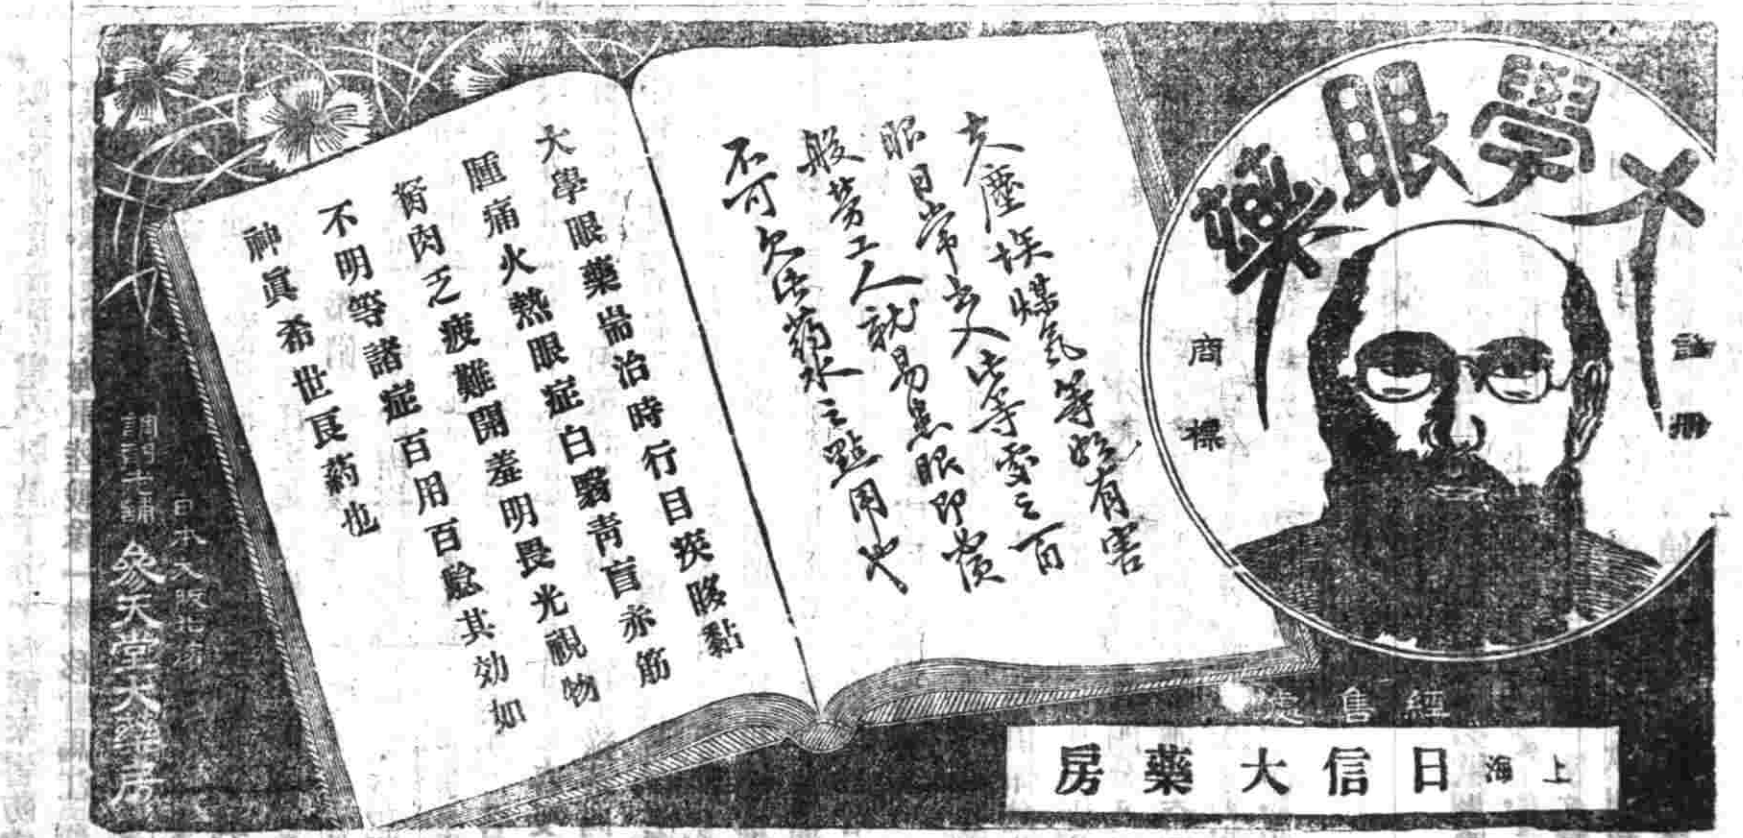 大學眼藥
註冊
商標
夫塵埃煤氣等於有害
眼目常出入此等處之一百
般勞工人就易患眼即貴
不可欠此药水之點用也
大學眼藥耑治時行目疾眵黏
腫痛火熱眼症白翳青盲赤筋
胬肉乏疲難開羞明畏光視物
不明等諸症百用百驗其効如
神眞希世良药也
日本大阪北濱
調製本舖 參天堂大藥房
經售處
上海 日信大藥房